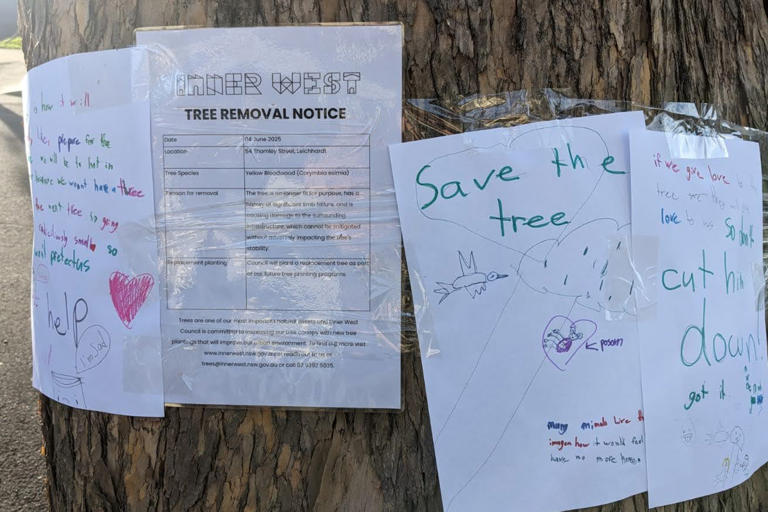 how it will
prepare for the
we will be to hot in
because we wont have a three
the next tree is going
rediculously small so
wont pretect us
help
INNER WEST
TREE REMOVAL NOTICE
Date 04 June 2025
Location 54 Thornley Street, Leichhardt
Tree Species Yellow Bloodwood (Corymbia eximia)
Reason for removal The tree is no longer fit for purpose, has a
history of significant limb failure, and is
causing damage to the surrounding
infrastructure, which cannot be mitigated
without adversely impacting the tree's
stability.
Replacement planting Council will plant a replacement tree as part
of our future tree planting programs.
Trees are one of our most important natural assets and Inner West
Council is committed to improving our tree canopy with new tree
plantings that will improve our urban environment. To find out more visit
www.innerwest.nsw.gov.au or reach out to us on
trees@innerwest.nsw.gov.au or call 02 9392 5000.
Save the
tree
possm
many animals live
imagen how it would feel
have no more home.
if we give love to
tree
love to us so
cut him
down!
got it